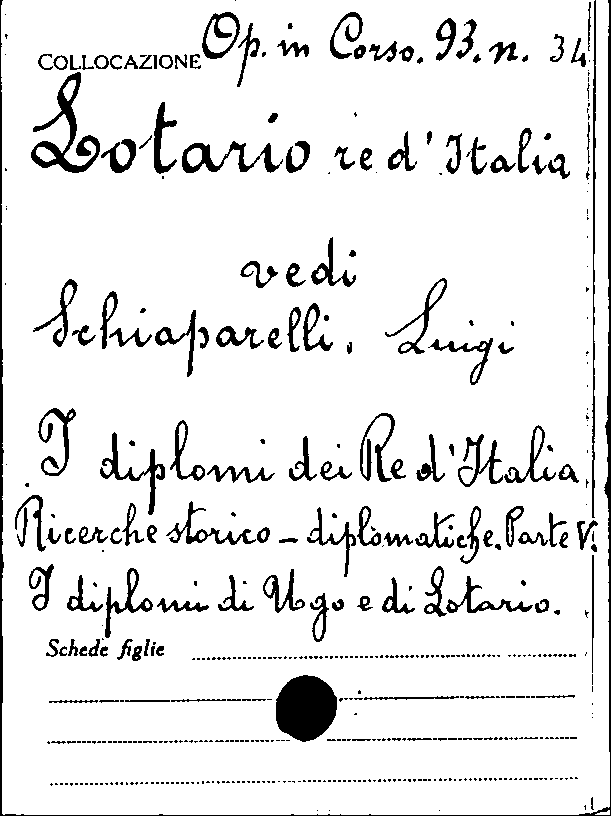 COLLOCAZIONE Op. in Corso. 93. n. 34
Lotario re d'Italia
vedi
Schiaparelli, Luigi
I diplomi dei Re d'Italia
Ricerche storico - diplomatiche. Parte V.
I diplomi di Ugo e di Lotario.
Schede figlie